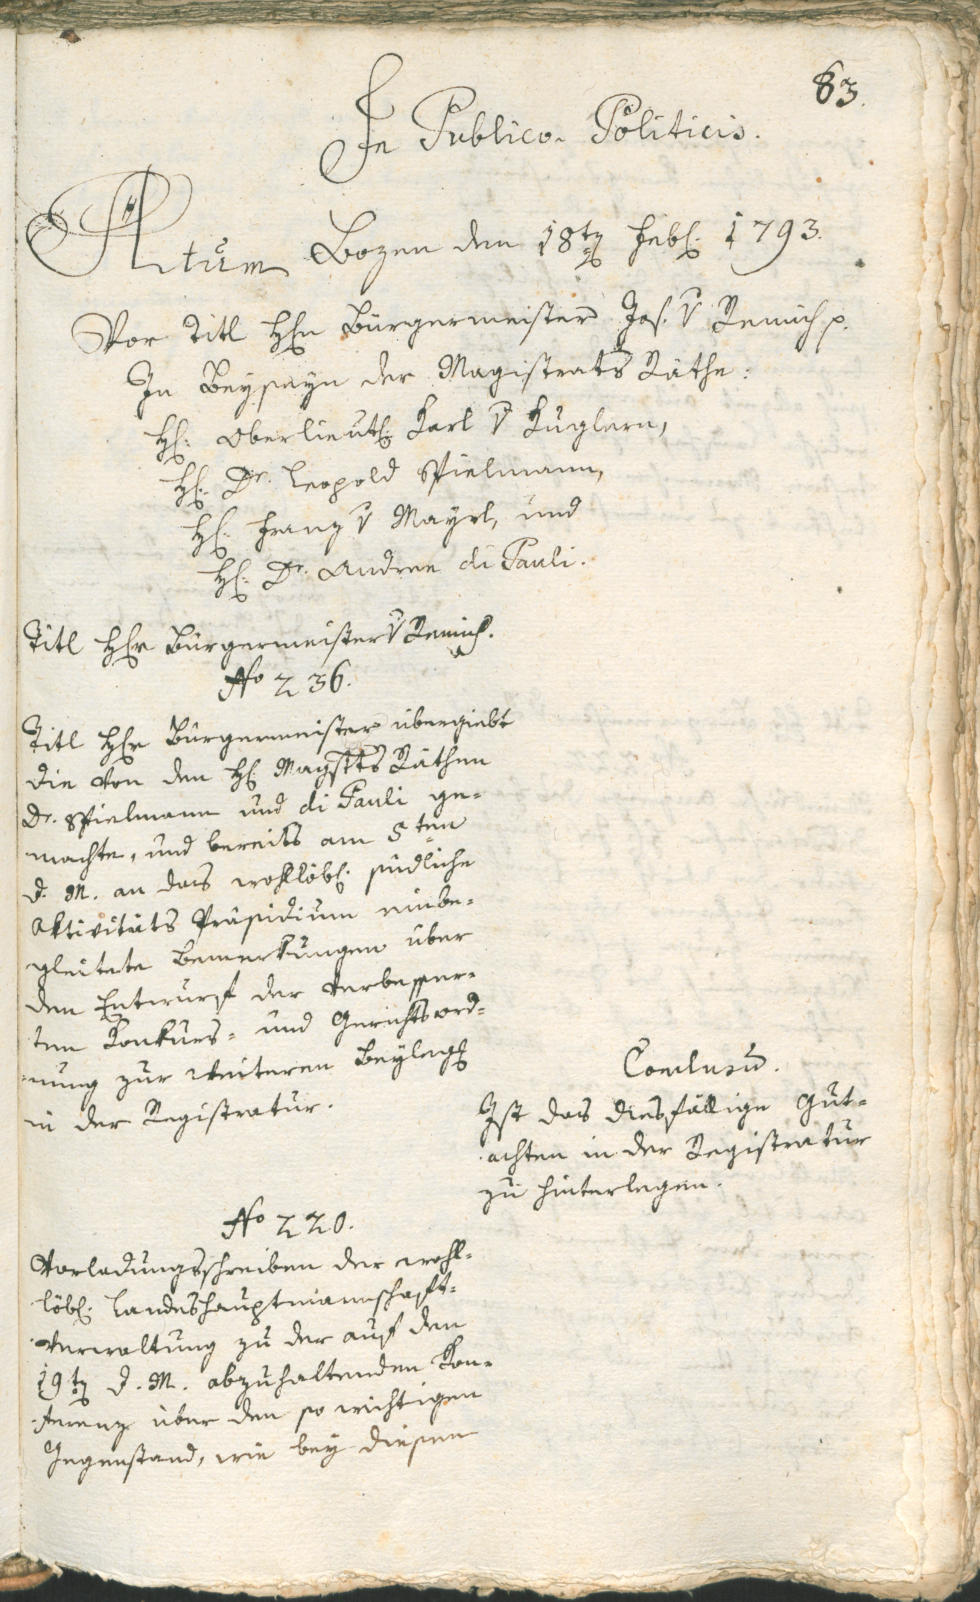 83.
In Publico- Politicis.
Actum Bozen den 18ten Febr. 1793.
Vor Titl Hhn Bürgermeister Jos. v Remich p.
In Beyseyn der Magistrats Räthe:
H: Oberlieut: Karl v Kuglern,
H: Dr. Leopold Spielmann,
H: Franz v Mayrl, und
H: Dr. Andree di Pauli.
Titl Hhr Bürgermeister v Remich.
No 236.
Titl Hhr Bürgermeister übergiebt
die von den H: Magstts Räthen
Dr. Spielmann und di Pauli ge-
machte, und bereits am 5ten
d. M. an das wohllöbl: südliche
Aktivitäts Präsidium einbe-
gleitete Bemerkungen über
den Entwurf der verbesser-
ten Konkurs- und Gerichtsord-
nung zur weiteren Beyleg
in der Registratur.
Conclusu.
Ist das diesfällige Gut-
achten in der Registratur
zu hinterlegen.
No 220.
Vorladungsschreiben der wohl-
löbl: Landeshauptmannschaft-
Verwaltung zu der auf den
19ten d. M. abzuhaltenden Kon-
ferenz über den so wichtigen
Gegenstand, wie bey diesen